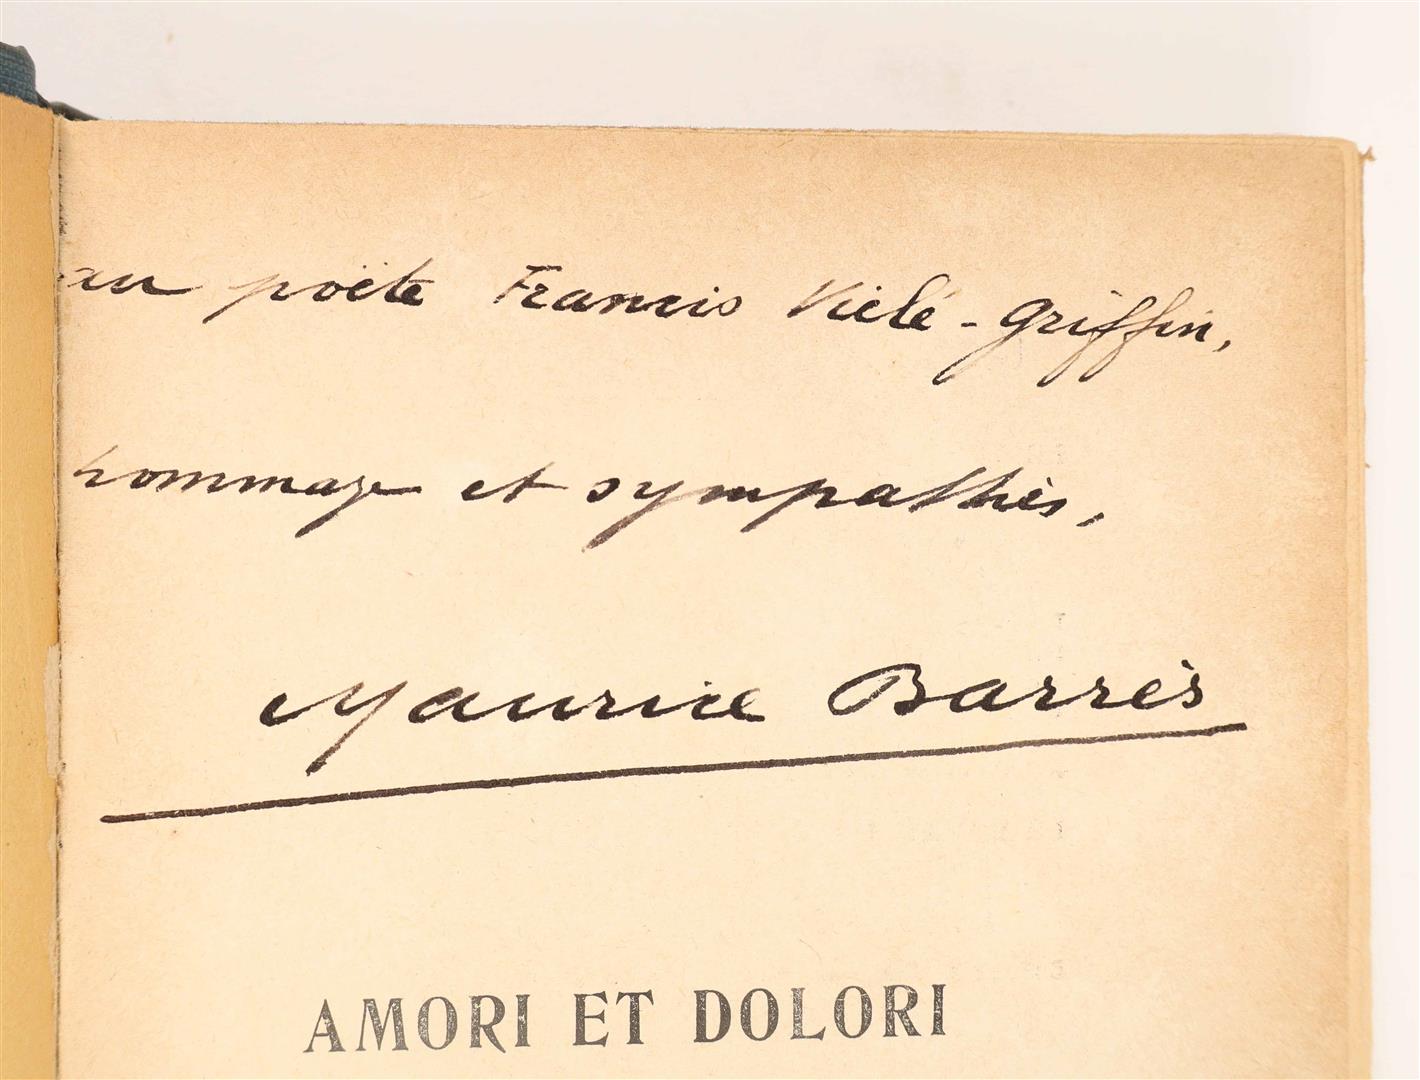 au poète Francis Vielé-Griffin,
hommage et sympathies,
Maurice Barrès
AMORI ET DOLORI